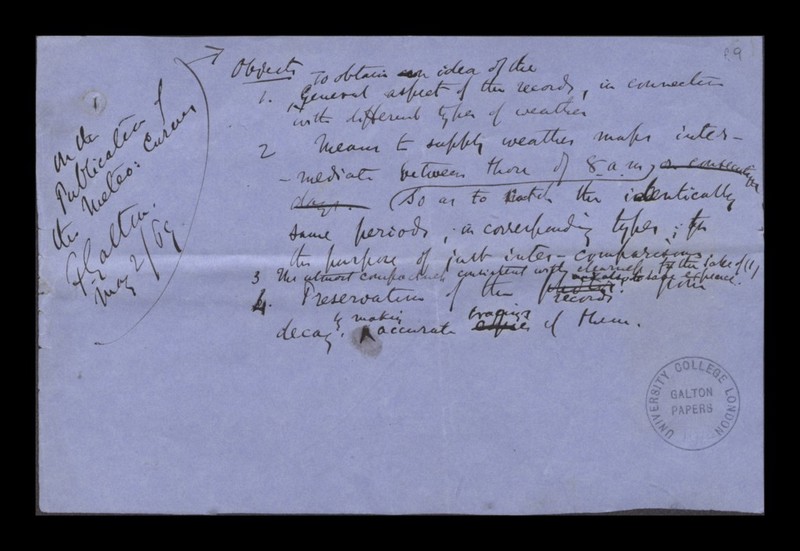 on the
Publication of
the Meteo: Curves
F Galton.
May 2/69.
Objects To obtain an idea of the
1. General aspect of the records, in connection
with different types of weather
2 Means to supply weather maps inter-
-mediate between those of 8 a.m, on consecutive
days. (So as to catch the identically
same periods, in corresponding types, for
the purpose of just inter-comparisons
3 The utmost compactness consistent with clearness for the sake of (1)
& also to save expence.
4. Preservation of the records from
decay, by making accurate tracings copies of them.
UNIVERSITY COLLEGE LONDON
GALTON
PAPERS